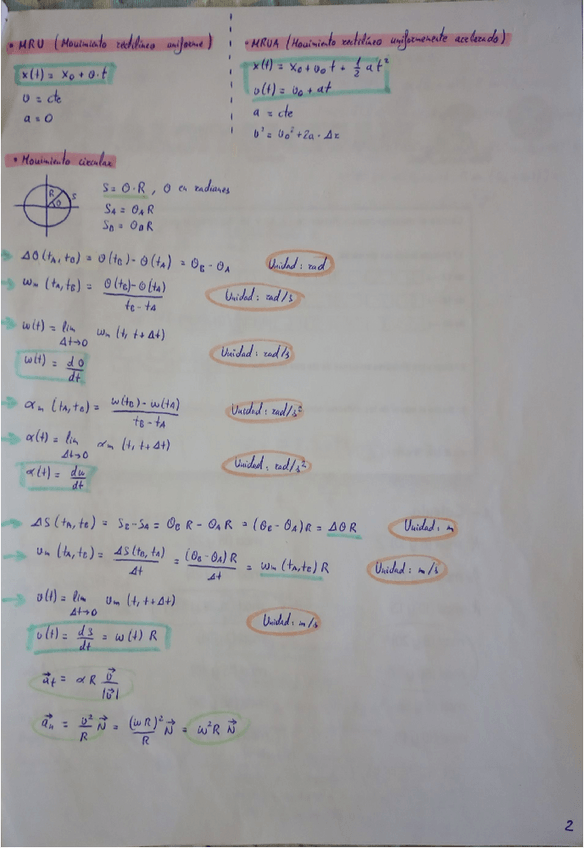 • MRU (Movimiento rectilíneo uniforme)
x(t) = x₀ + v·t
v = cte
a = 0
• MRUA (Movimiento rectilíneo uniformemente acelerado)
x(t) = x₀ + v₀ t + 1/2 at²
v(t) = v₀ + at
a = cte
v² = v₀² + 2a·Δx
• Movimiento circular
R S θ
S = θ·R, θ en radianes
S_A = θ_A R
S_B = θ_B R
→ Δθ(t_A, t_B) = θ(t_B) - θ(t_A) = θ_B - θ_A Unidad: rad
→ ω_m (t_A, t_B) = (θ(t_B) - θ(t_A)) / (t_B - t_A) Unidad: rad/s
→ ω(t) = lim Δt→0 ω_m (t, t+Δt)
ω(t) = dθ/dt Unidad: rad/s
→ α_m (t_A, t_B) = (ω(t_B) - ω(t_A)) / (t_B - t_A) Unidad: rad/s²
→ α(t) = lim Δt→0 α_m (t, t+Δt)
α(t) = dω/dt Unidad: rad/s²
→ ΔS(t_A, t_B) = S_B - S_A = θ_B R - θ_A R = (θ_B - θ_A)R = Δθ R Unidad: m
→ v_m (t_A, t_B) = ΔS(t_B, t_A)/Δt = (θ_B - θ_A)R/Δt = ω_m (t_A, t_B) R Unidad: m/s
→ v(t) = lim Δt→0 v_m (t, t+Δt)
v(t) = ds/dt = ω(t) R Unidad: m/s
a⃗_t = α R v⃗/|v⃗|
a⃗_n = v²/R N⃗ = (ωR)²/R N⃗ = ω²R N⃗
2